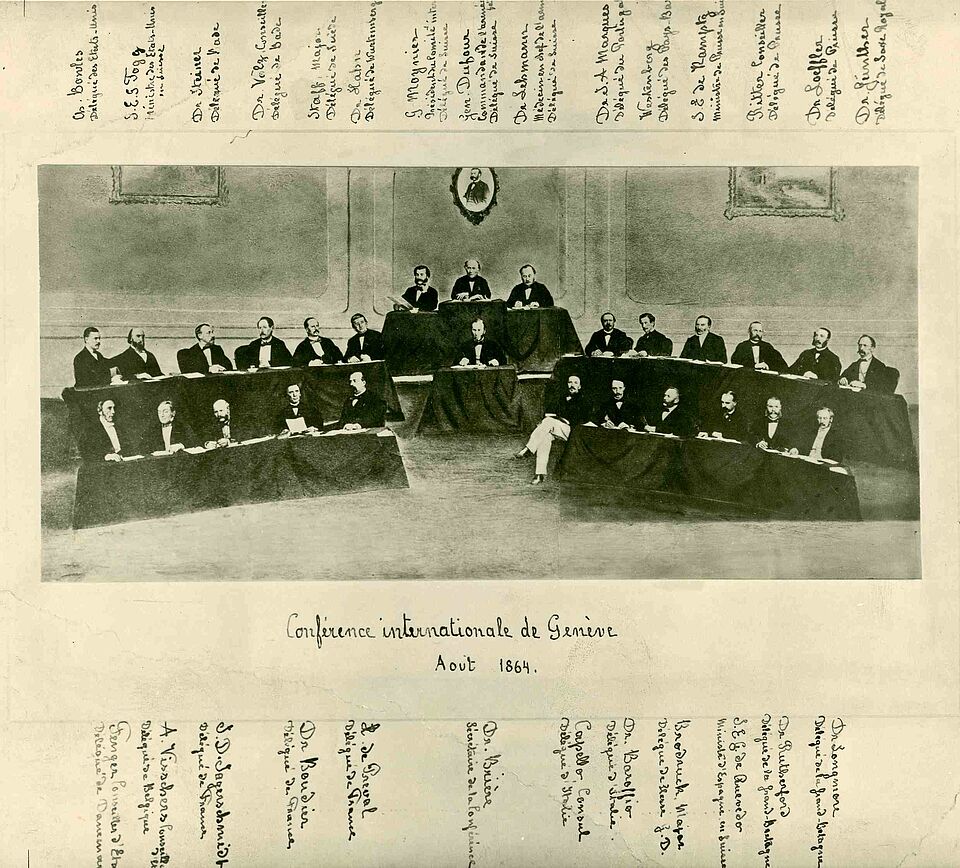 Cs. Bowles
Délégué des Etats-Unis
S.E.S Fogg
Ministre des Etats-Unis
en Suisse
Dr Steiner
Délégué de Bade
Dr Volz Conseiller
Délégué de Bade
Staaff Major
Délégué de Suède
Dr Hahn
Délégué de Wurtemberg
G. Moynier
Président du Comité int
Délégué de Suisse
Gen. Dufour
Commandant de l'armée
Délégué de Suisse
Dr Lehmann
Médecin en chef de l'arm
Délégué de Suisse
Dr J. A Marques
Délégué du Portugal
Westenberg
Délégué des Pays-Bas
S.E de Kamptz
Ministre de Prusse en Suisse
Ritter Conseiller
Délégué de Prusse
Dr Loeffler
Délégué de Prusse
Dr Günther
Délégué de Saxe Royale
Conférence internationale de Genève
Août 1864.
Fenger Conseiller d'Etat
Délégué de Danemark
A. Visschers Conseiller
Délégué de Belgique
J. D. Jagerschmidt
Délégué de France
Dr Boudier
Délégué de France
H. de Préval
Délégué de France
Dr. Brière
Secrétaire de la Conférence
Capello Consul
Délégué d'Italie
Dr. Baroffio
Délégué d'Italie
Brodruck Major
Délégué de Hesse G.D.
S.E.G. de Quevedo
Ministre d'Espagne en Suisse
Dr Rutherford
Délégué de la Grand-Bretagne
Dr Longmore
Délégué de la Grand-Bretagne